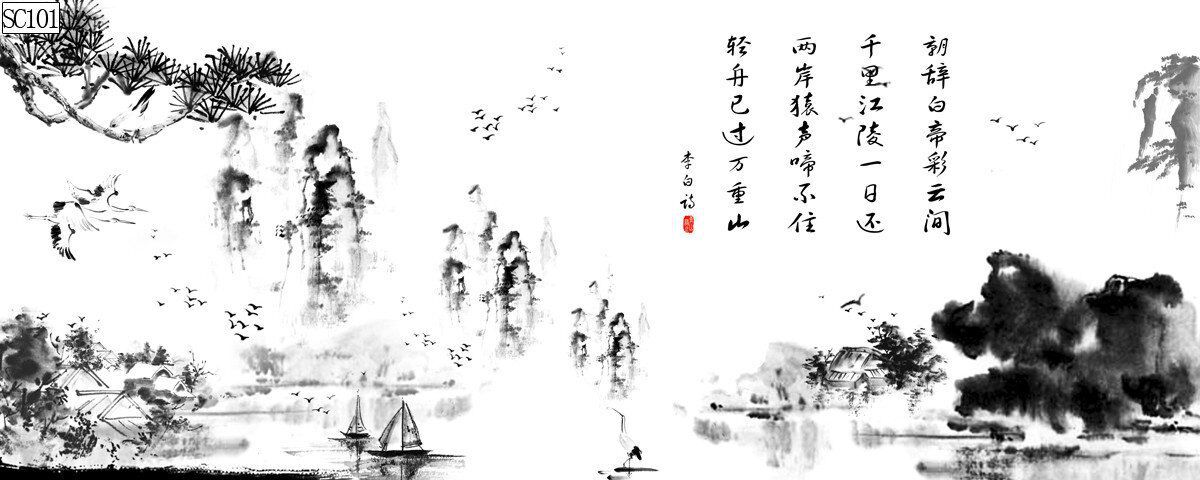 SC101
朝辞白帝彩云间
千里江陵一日还
两岸猿声啼不住
轻舟已过万重山
李白诗